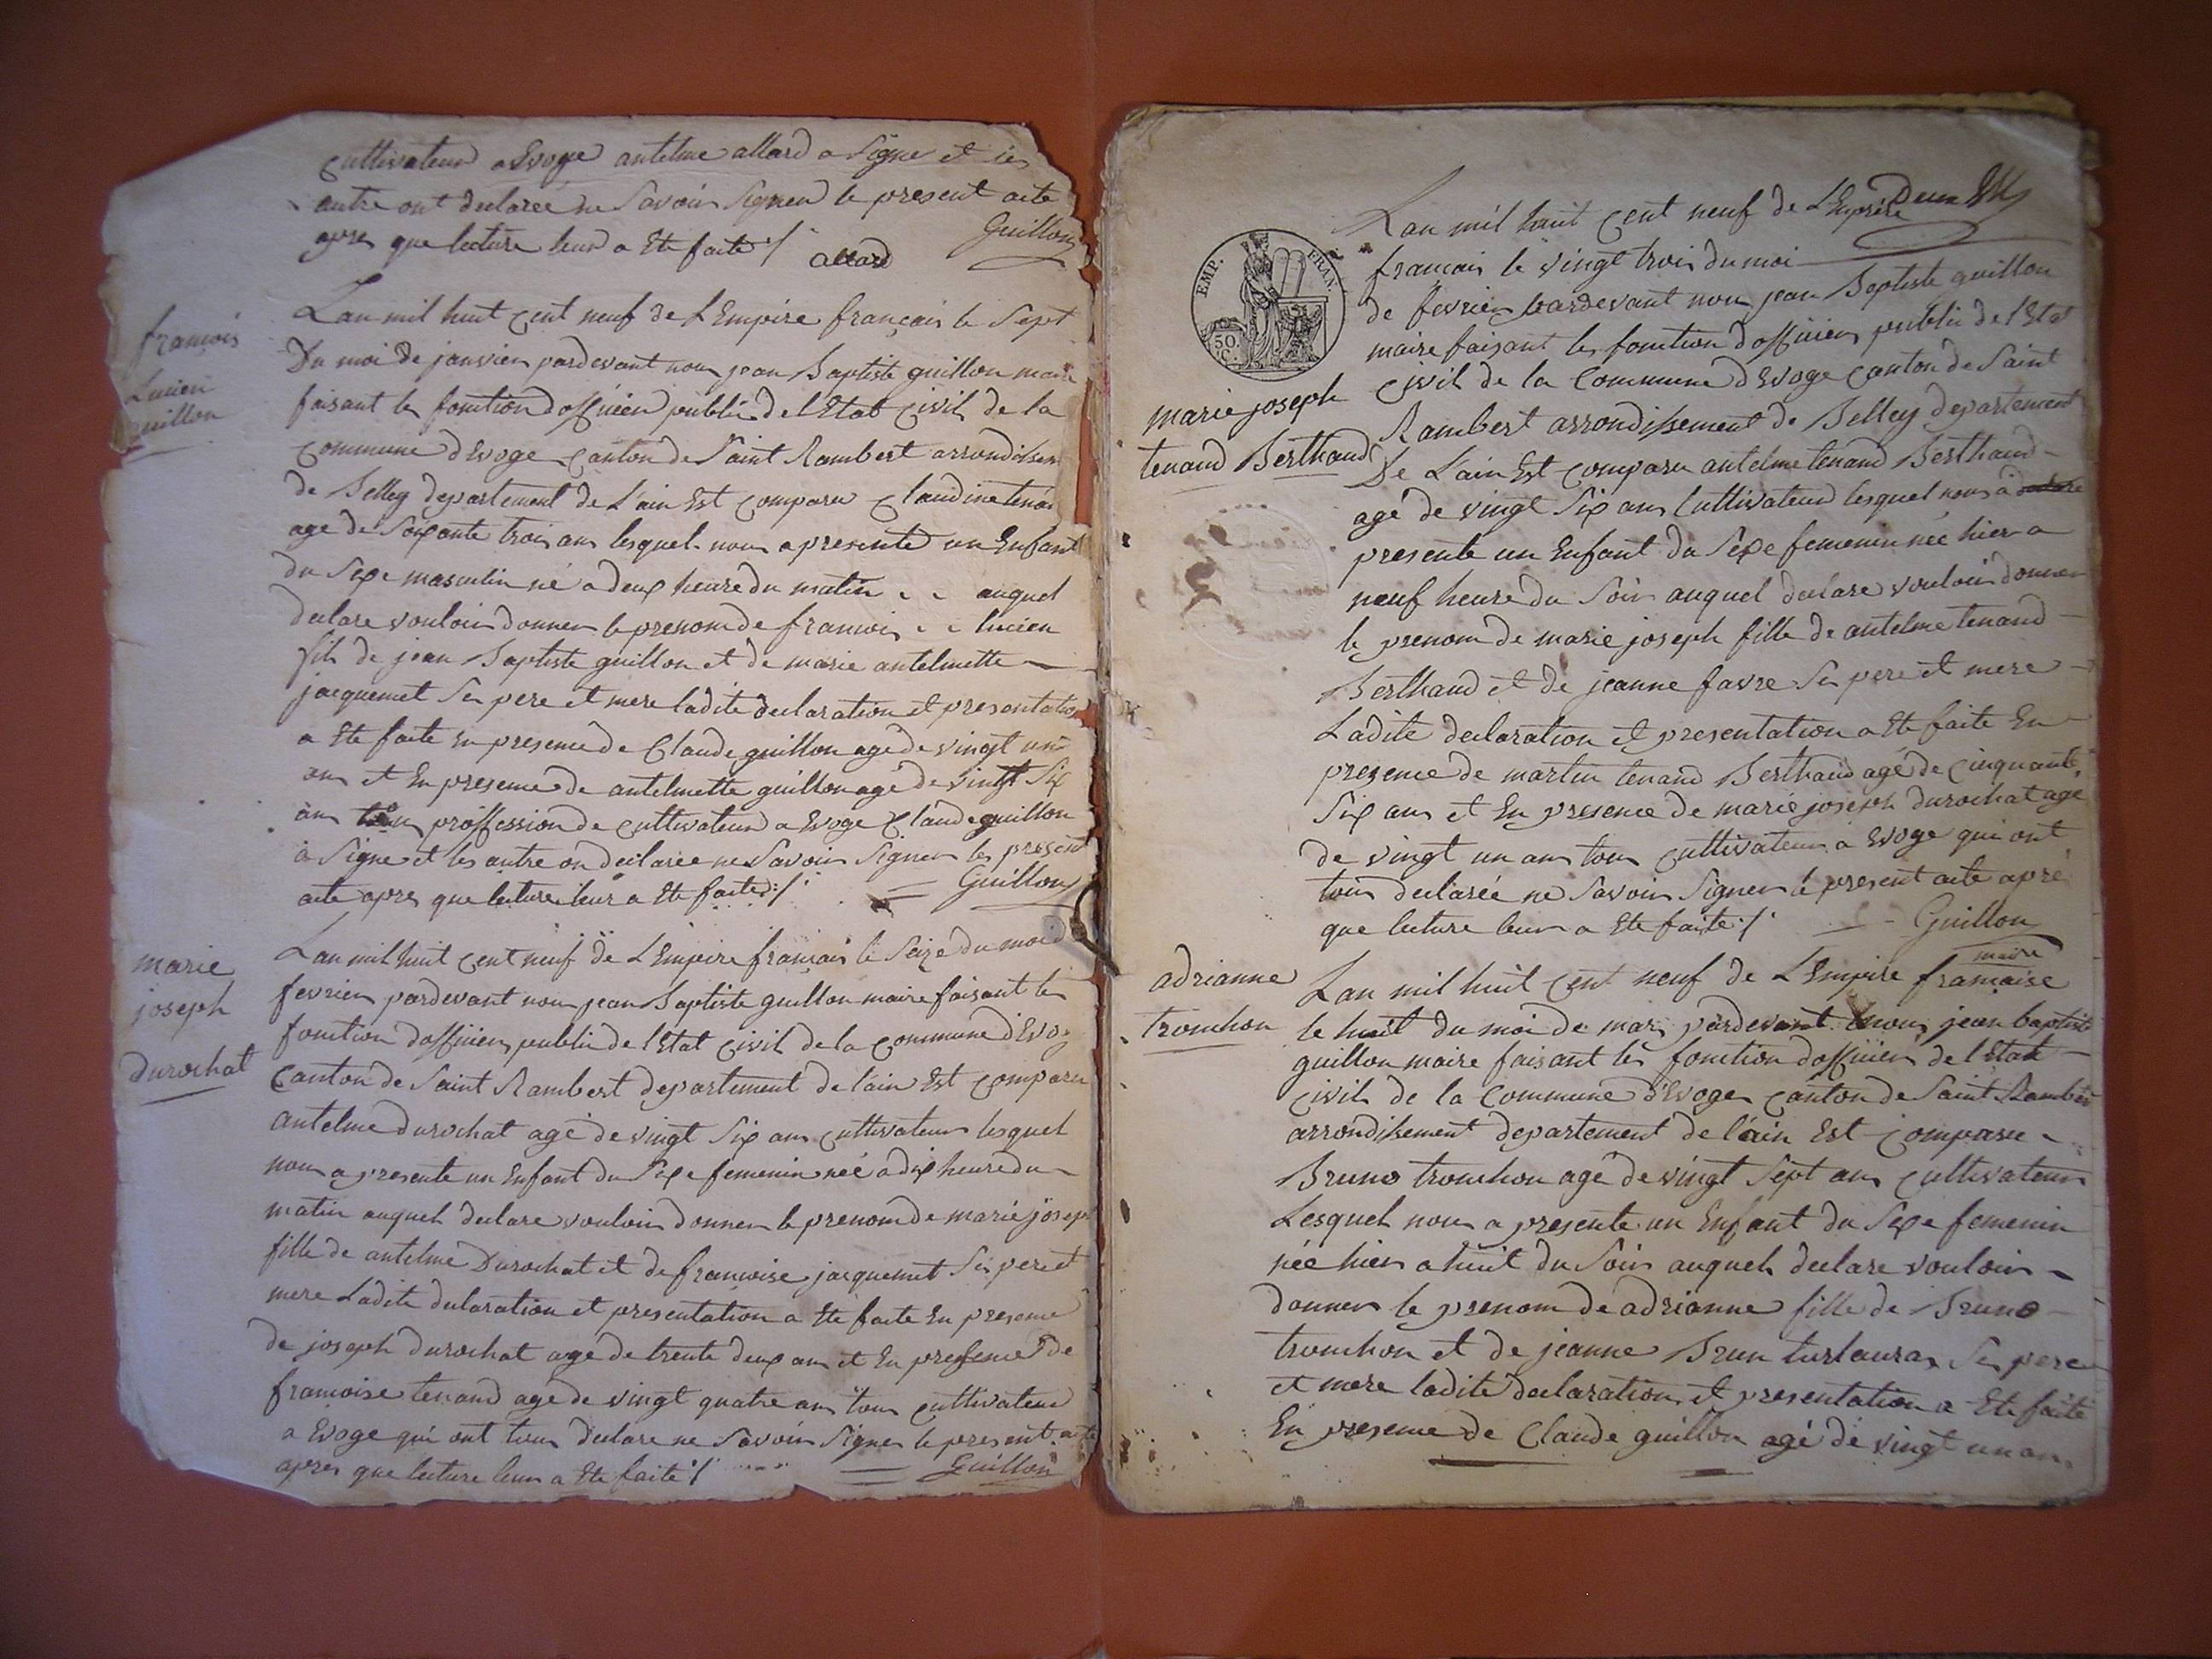 cultivateur a Evoge antelme allard a Signe et les
autre ont declaree ne Savoir Signer le present acte
apres que lecture leur a Ete faite ./.
allard
Guillon
francois
Lucien
guillon
Lan mil huit Cent neuf de L Empire français le Sept
Du moi de janvier pardevant nous jean Baptiste guillon maire
faisant les fonction dofficier public de l Etat Civil de la
Commune d Evoge Canton de Saint Rambert arrondissem
de Belley departement de L'ain Est Comparu Claudine tenan
age de Soixante trois ans lesquel nous a presente un Enfant
du Sexe masculin né a deux heure du matin - - auquel
declare vouloir donner le prenom de francois - - lucien
fils de jean Baptiste guillon et de marie antelmette
jacquemet Ses pere et mere ladite declaration et presentation
a Ete faite En presence de Claude guillon age de vingt un
ans et En presence de antelmette guillon agé de vingt Six
ans tous proffession de Cultivateur a Evoge Claude guillon
à Signe et les autre on declaree ne Savoir Signer les present
acte apres que lecture leur a Ete faite ./.
Guillon
marie
joseph
durochat
Lan mil huit Cent neuf de L Empire francais le Seize du moi d
fevrier pardevant nous jean Baptiste guillon maire faisant les
fonction dofficier public de l Etat Civil de la Commune d'Evog
Canton de Saint Rambert departement de lain Est Comparu
antelme durochat agé de vingt Six ans Cultivateur lesquel
nous a presente un Enfant du Sexe femenin née a dix heure du
matin auquel declare vouloir donner le prenom de marie joseph
fille de antelme Durochat et de francoise jacquemet Ses pere et
mere Ladite declaration et presentation a Ete faite En presence
de joseph durochat age de trente deux ans et En presence de
francoise tenand age de vingt quatre ans tous Cultivateur
a Evoge qui ont tous declare ne Savoir Signer le present acte
apres que lecture leur a Ete faite ./.
Guillon
EMP. FRAN.
50.
C.
Lan mil huit Cent neuf de L'Empire
francais le vingt trois du moi
de fevrier pardevant nous jean Baptiste guillon
maire faisant les fonction dofficier public de l Etat
Civil de la Commune d Evoge Canton de Saint
marie joseph
tenand Berthaud
Rambert arrondissement de Belley departement
De Lain Est Comparu antelme tenand Berthaud
agé de vingt Six ans Cultivateur lesquel nous à
presente un Enfant du Sexe femenin née hier a
neuf heure du Soir auquel declare vouloir donner
le prenom de marie joseph fille de antelme tenand
Berthaud et de jeanne favre Ses pere et mere
Ladite declaration et presentation a Ete faite En
presence de martin tenand Berthaud agé de Cinquante
Six ans et En presence de marie joseph durochat age
de vingt un ans tous Cultivateur a Evoge qui ont
tous declarée ne Savoir Signer le present acte apre
que lecture leur a Ete faite ./.
Guillon
maire
adrianne
tronchon
Lan mil huit Cent neuf de L Empire francaise
le huit du moi de mars pardevant nous jean baptiste
guillon maire faisant les fonction dofficier de l Etat
Civil de la Commune d'Evoge Canton de Saint Rambert
arrondissement departement de l'ain Est Comparu
Bruno tronchon agé de vingt Sept ans Cultivateur
Lesquel nous a presente un Enfant du Sexe femenin
née hier a huit du Soir auquel declare vouloir
donner le prenom de adrianne fille de Bruno
tronchon et de jeanne Brun Ses pere
et mere ladite declaration et presentation a Ete faite
En presence de Claude guillon agé de vingt un ans